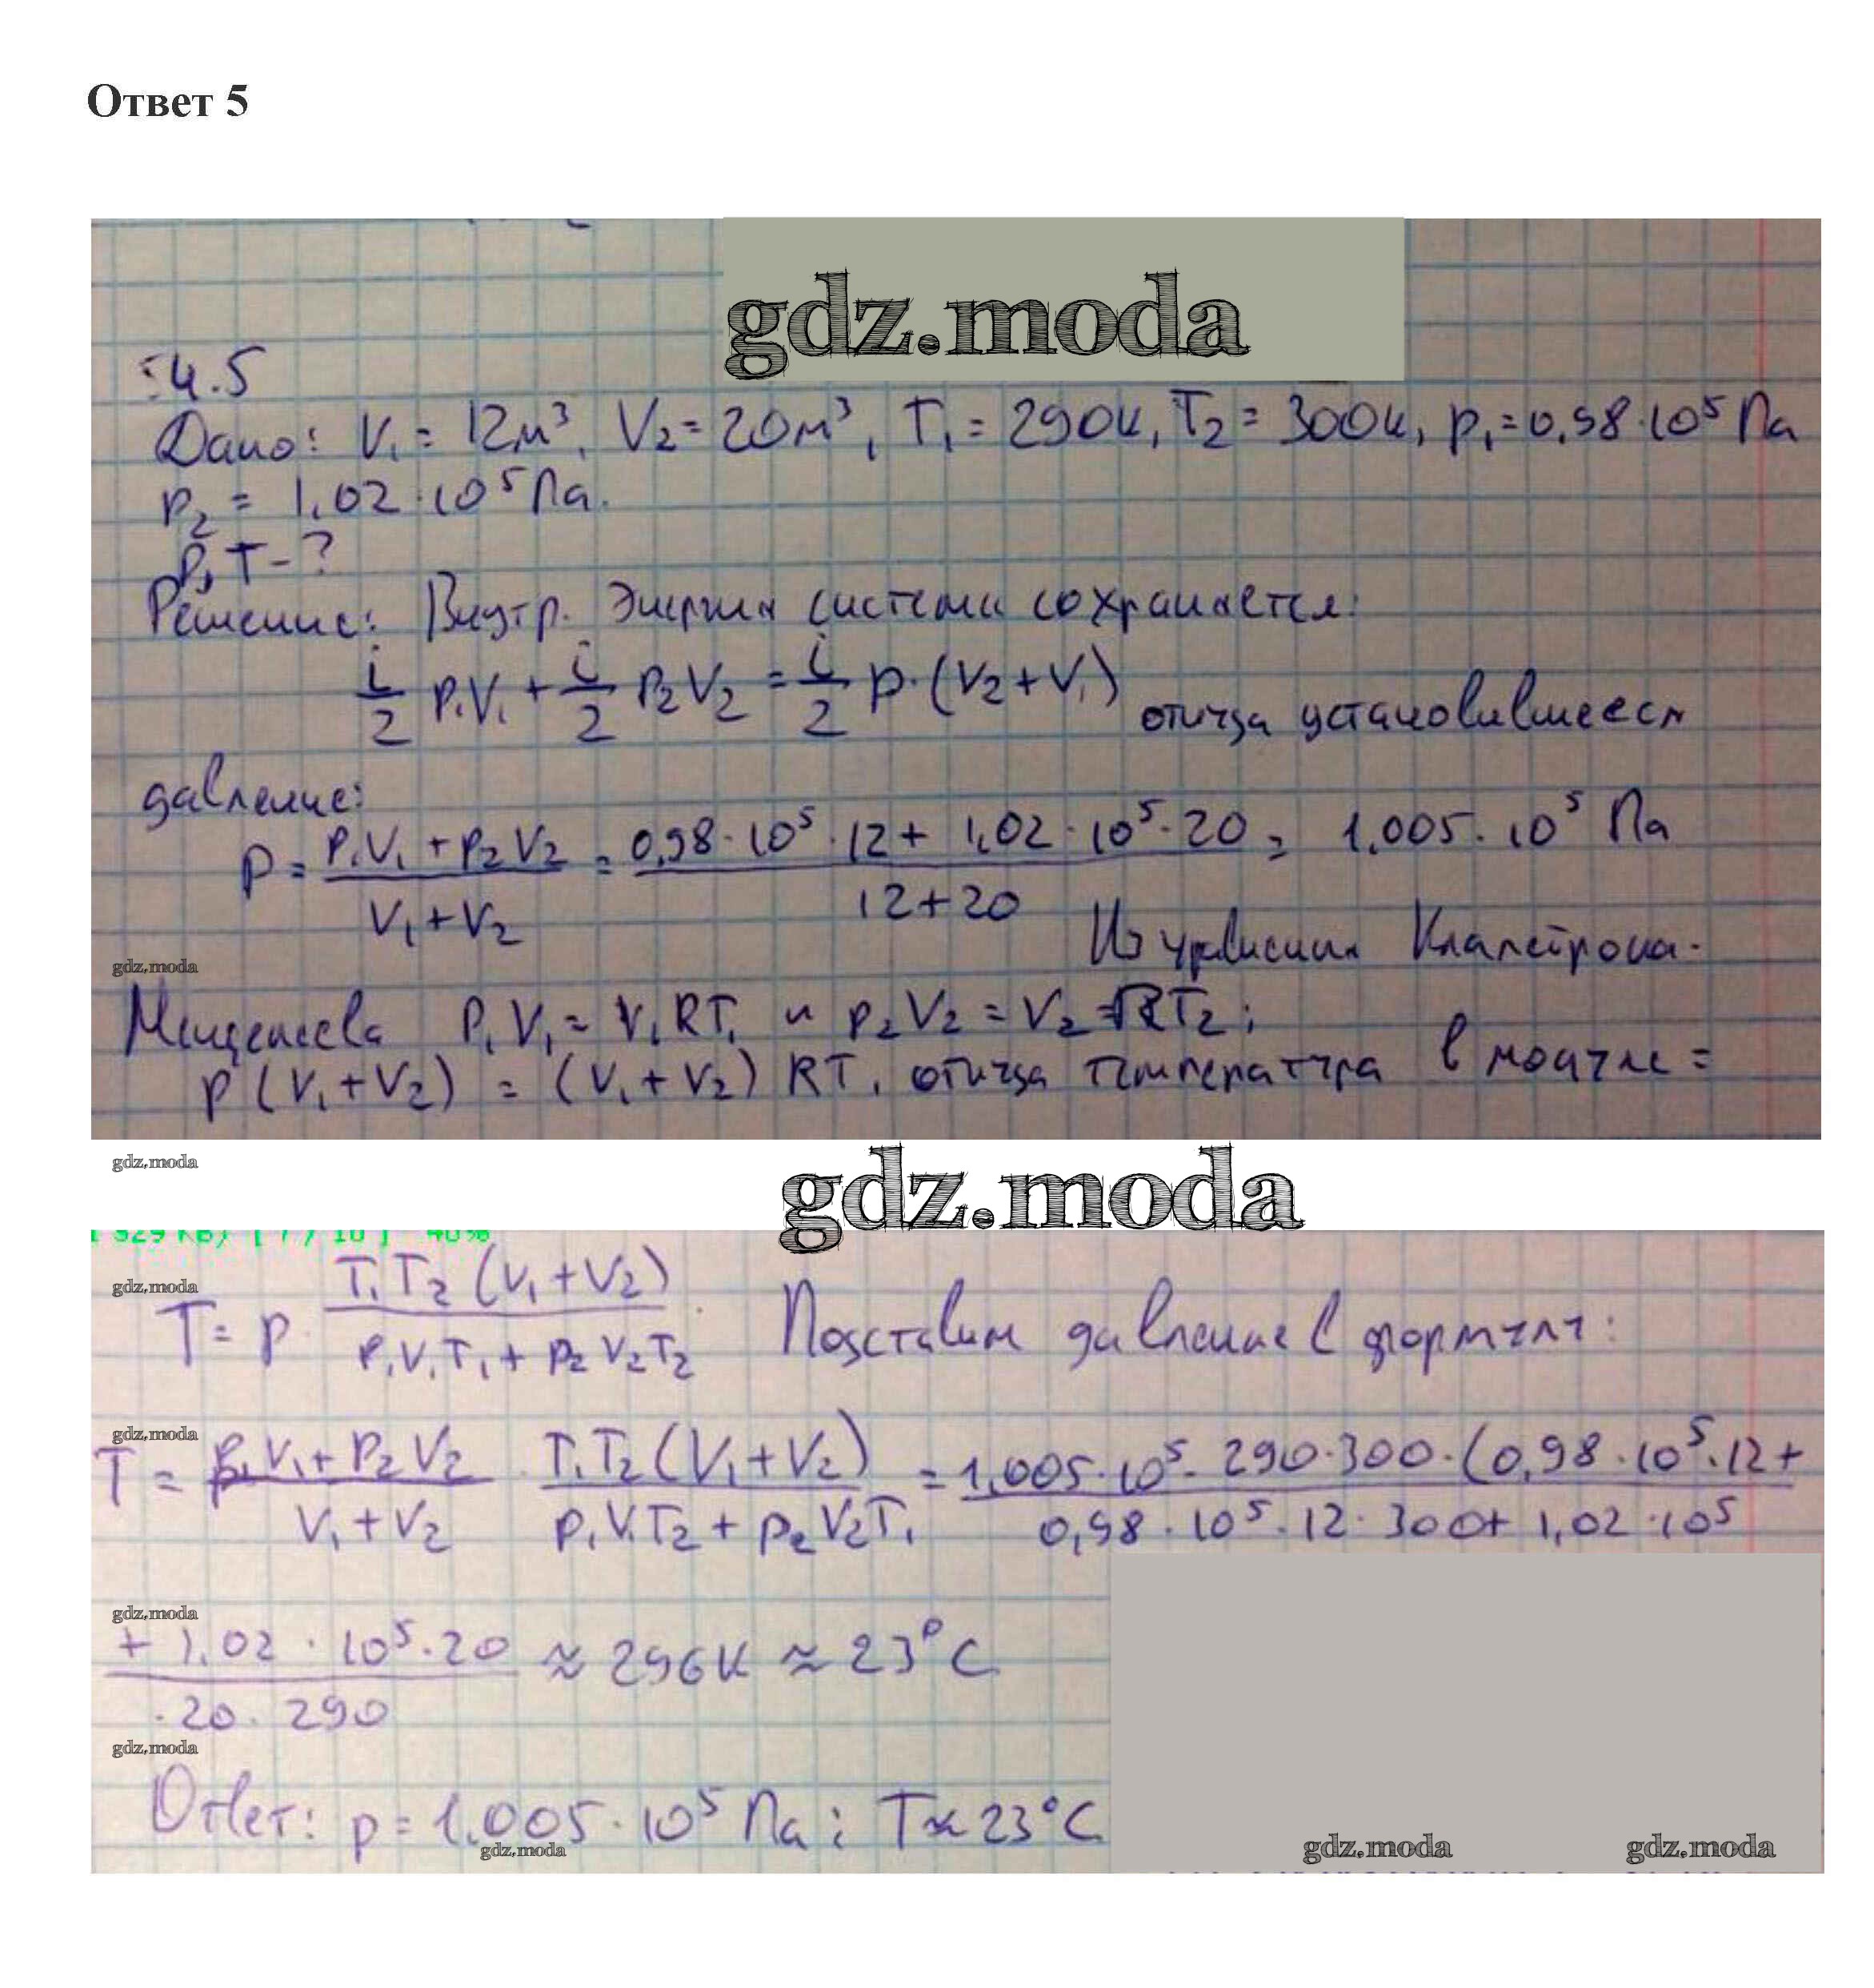 Ответ 5
gdz.moda
4.5
Дано: V₁ = 12м³, V₂ = 20м³, T₁ = 290к, T₂ = 300к, p₁ = 0,98·10⁵ Па
p₂ = 1,02·10⁵ Па.
p, T - ?
Решение: Внутр. Энергия система сохраняется:
i/2 p₁V₁ + i/2 p₂V₂ = i/2 p·(V₂+V₁) откуда установившееся
давление:
p = (p₁V₁ + p₂V₂)/(V₁+V₂) = (0,98·10⁵·12 + 1,02·10⁵·20)/(12+20) = 1,005·10⁵ Па
Из уравнения Клапейрона-
gdz.moda
Менделеева p₁V₁ = ν₁RT₁ и p₂V₂ = ν₂RT₂;
p(V₁+V₂) = (ν₁+ν₂)RT, откуда температура в
gdz.moda
gdz.moda
gdz.moda
T = p · T₁T₂(V₁+V₂)/(p₁V₁T₁ + p₂V₂T₂). Подставим давление в формулу:
gdz.moda
T = (p₁V₁ + p₂V₂)/(V₁+V₂) · T₁T₂(V₁+V₂)/(p₁V₁T₂ + p₂V₂T₁) = 1,005·10⁵·290·300·(0,98·10⁵·12+ / 0,98·10⁵·12·300+1,02·10⁵
gdz.moda
+1,02·10⁵·20 / ·20·290 ≈ 296к ≈ 23°C
gdz.moda
Ответ: p = 1,005·10⁵ Па; T ≈ 23°C
gdz.moda
gdz.moda gdz.moda